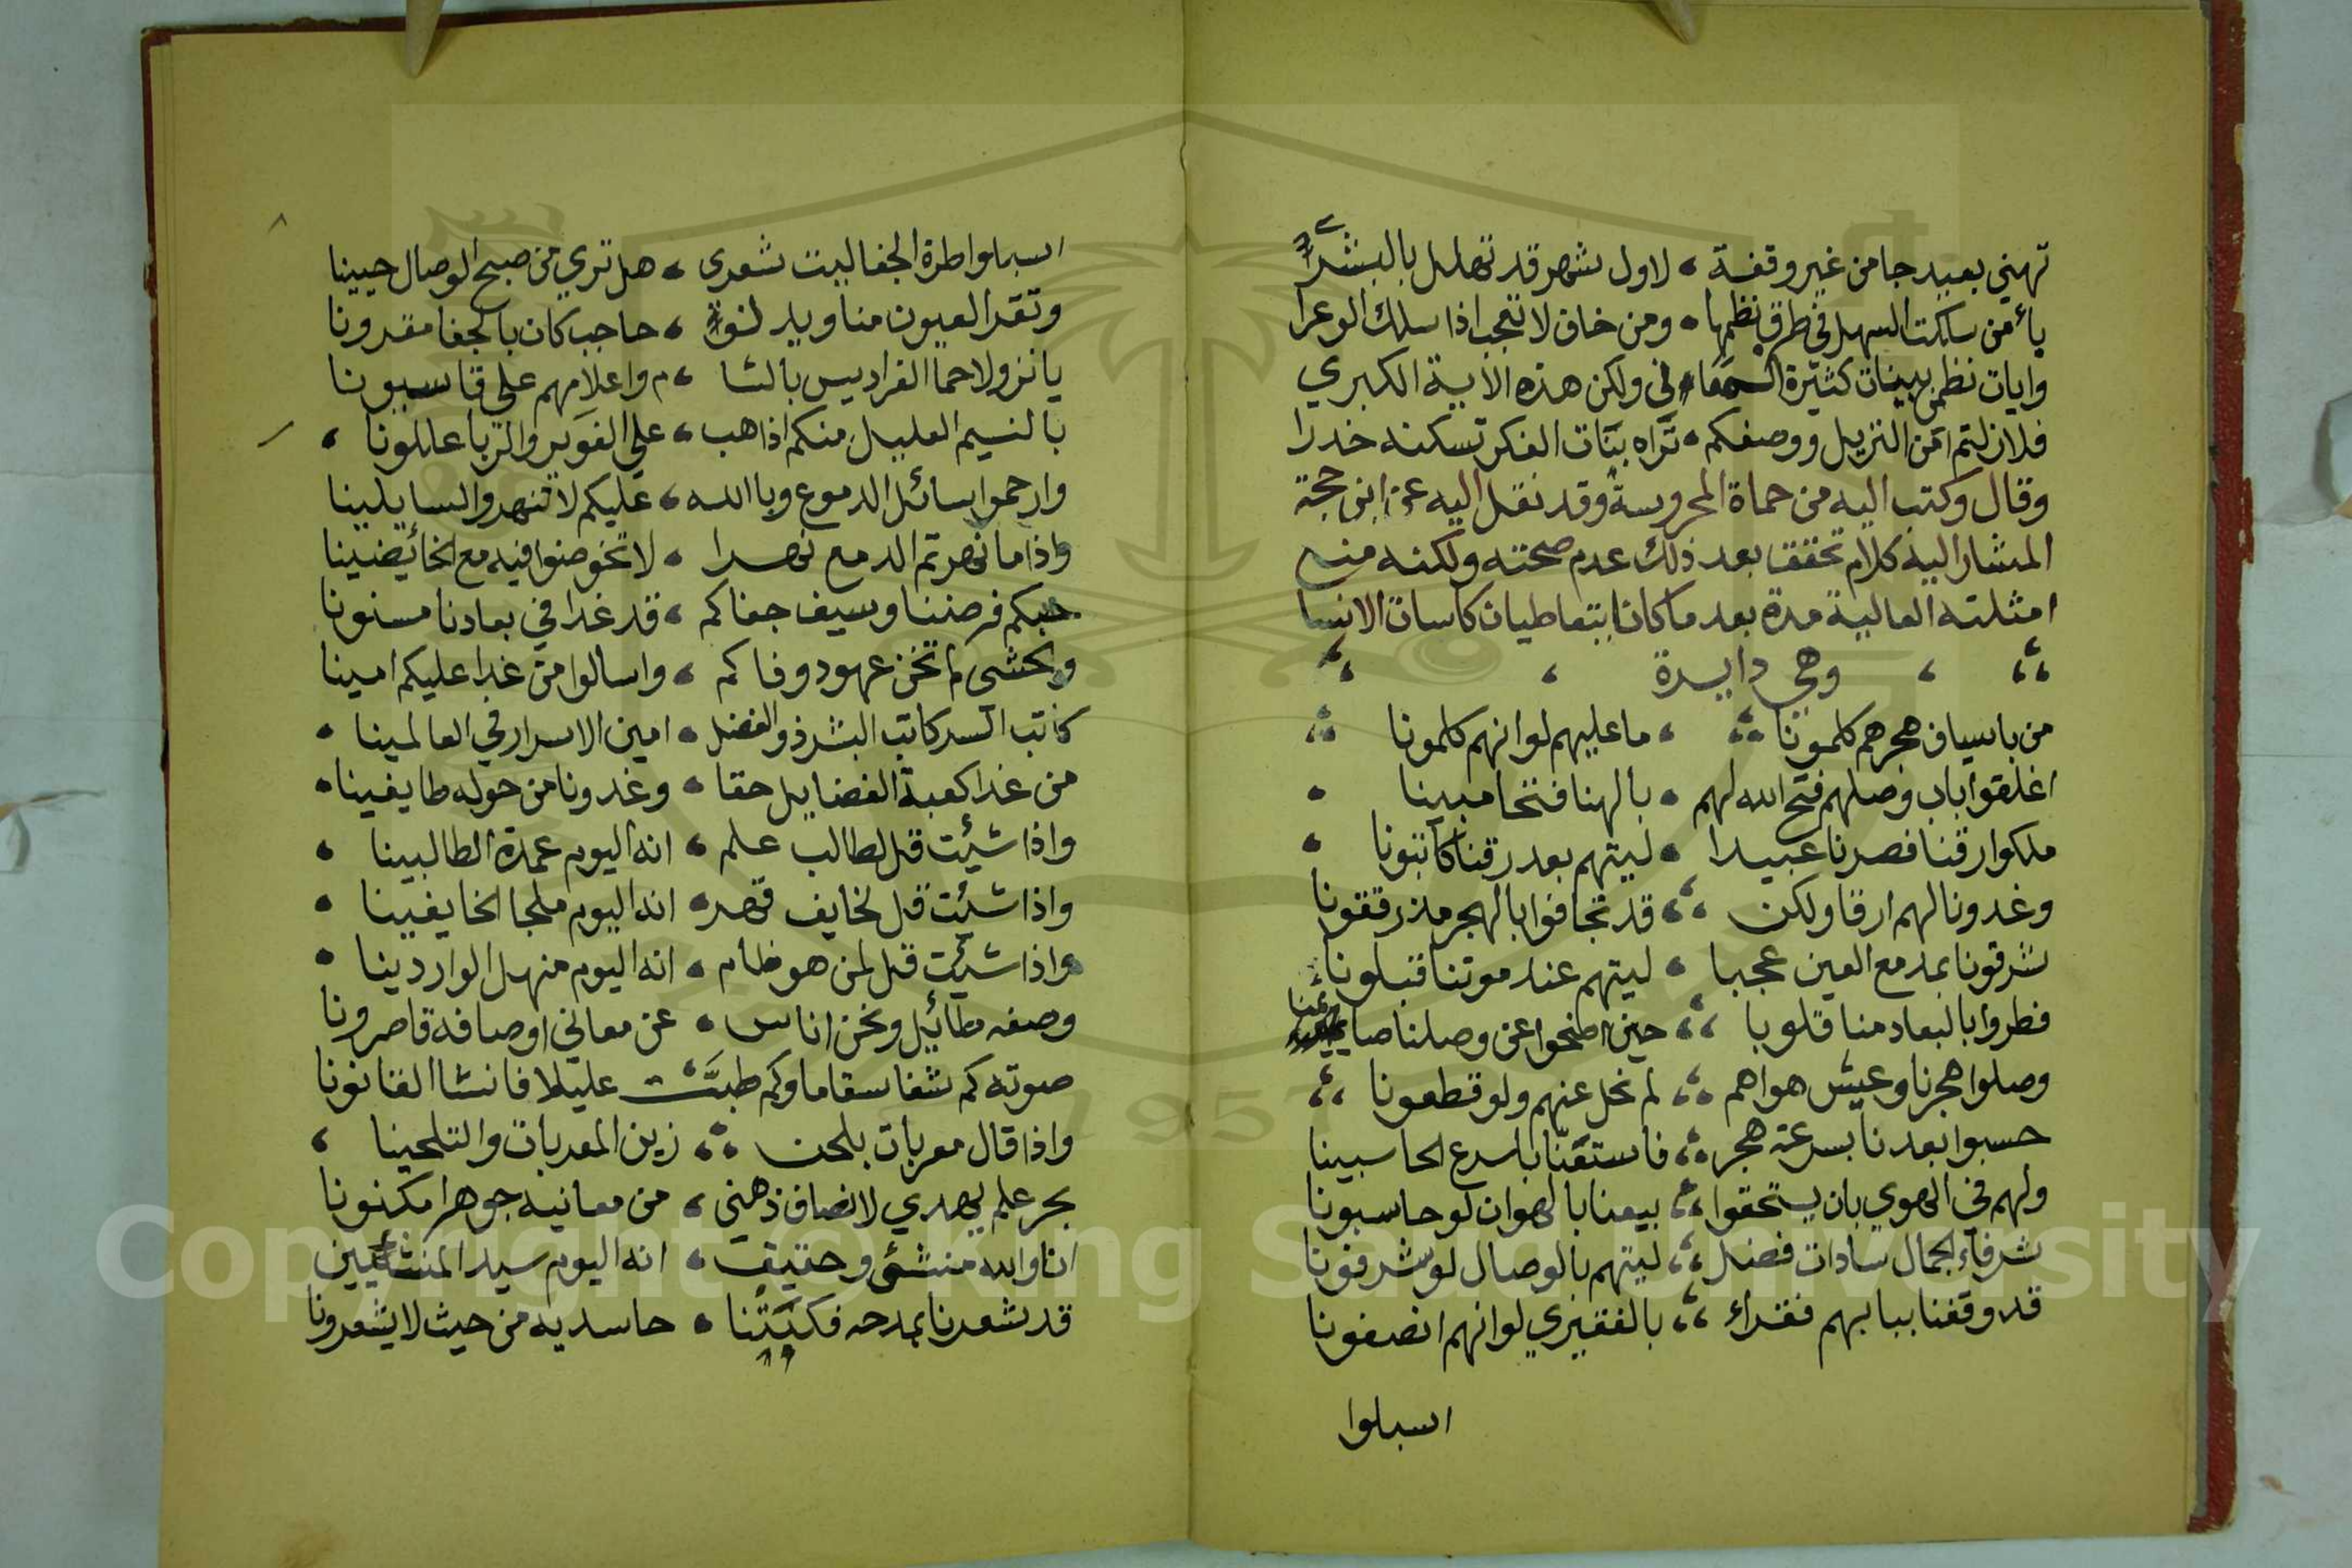 تهني بعيد جا من غير وقفة لاول شهر قد تهلل بالبشرا
سالكت السهل في طرق نظمها ومن خاف لا تعجب اذا سلك الوعرا
وايات نظمي بينات كثيرة ولكن هذه الاية الكبري
فلا زلتم امن النزيل ووصفكم تراه بنات الفكر تسكنه خدرا
وقال وكتب اليه من حماة المحروسة وقد نقل اليه عن ابن حجة
المشار اليه كلام تحقق بعد ذلك عدم صحته ولكنه منع
امثلته العالية مدة بعد ما كانا يتعاطيان كاسات الانشا
وهي دايرة
من باسياف هجرهم كلمونا ما عليهم لو انهم كلمونا
اغلقوا باب وصلهم فتح الله لهم بالهنا فتحا مبينا
ملكوا رقنا فصرنا عبيدا ليتهم بعد رقنا كاتبونا
وغدونا لهم ارقا ولكن قد تجافوا بالهجر مذ رققونا
شرقونا بمدمع العين عجبا ليتهم عند موتنا قبلونا
فطروا بالبعاد منا قلوبا حين اضحوا عن وصلنا
وصلوا هجرنا وعيش هواهم لم نحل عنهم ولو قطعونا
حسبوا بعدنا بسرعة هجر فاستقنا باسرع الحاسبينا
ولهم في الهوي بان يستحقوا بيعنا بالهوان لو حاسبونا
شرفاء الجمال سادات فضل ليتهم بالوصال لو شرفونا
قد وقفنا ببابهم فقراء بالفقيري لو انهم انصفونا
اسبلوا
اسبلوا طرة الجفا ليت شعري هل تري من صبح الوصال حبينا
وتقر العيون منا حاجب كان بالجفا مقرونا
يا نزولا حما الفراديس بالشا م واعلامهم علي قاسيونا
بالنسيم العليل منكم اذا هب علي الغوير والربا عللونا
وارحموا سائل الدموع وبا الله عليكم لا تنهروا السايلينا
واذا ما نهرتم الدمع نهرا لا تخوضوا فيه مع الخائضينا
حبكم فرضننا وسيف جفاكم قد غدا في بعادنا مسنونا
وبحشي لم تخن عهود وفاكم واسالوا من غدا عليكم امينا
كاتب السر كاتب البشر ذو الفضل امين الاسرار في العالمينا
من غدا كعبة الفضايل حقا وغدونا من حوله طايفينا
واذا شيئت قل لطالب علم انه اليوم عمدة الطالبينا
واذا شيئت قل لخايف قهر انه اليوم ملجا الخايفينا
واذا شيئت قل لمن هو ظام انه اليوم منهل الواردينا
وصفه مطائيل ونحن اناس عن معاني اوصافه قاصرونا
صوته كم شفا سقاما وكم طبت عليلا فانشا القانونا
واذا قال معربات بلحن زين المعربات والتلحينا
بحر علم يهدي لانصاف ذهني من معانيه جوهرا مكنونا
انا والله منشئ وحقيق انه اليوم سيد المنشئيين
قد شعرنا بمدحه فكبتنا حاسديه من حيث لا يشعرونا
Copyright © King Saud University
1957